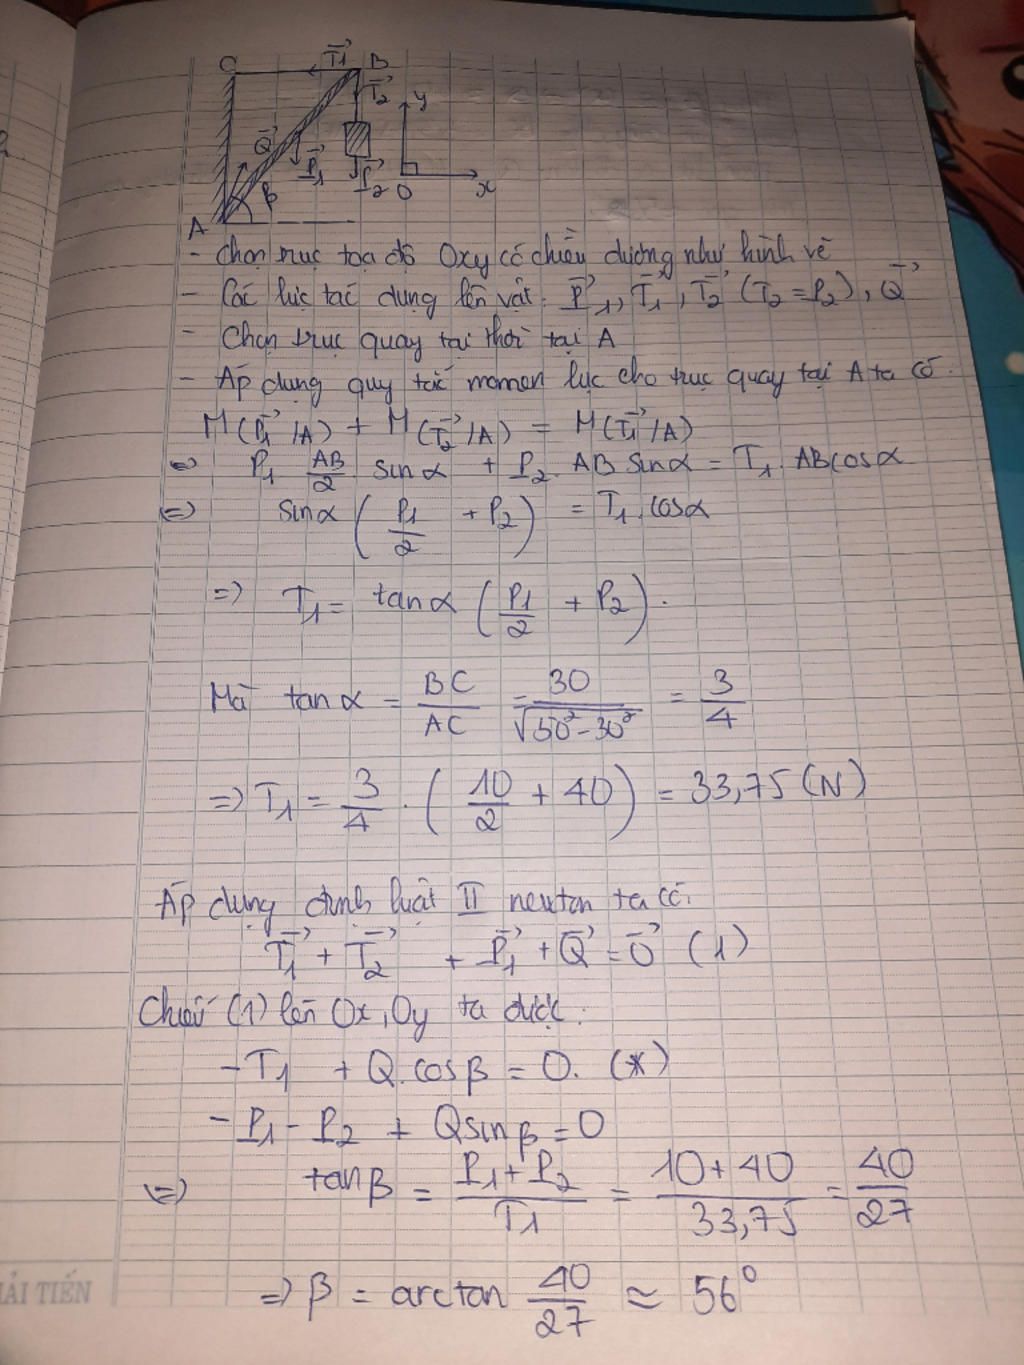 C T₁→ B
T₂→ y
Q→ P₁→ P₂→ O x
β
A
- Chọn trục tọa độ Oxy có chiều dương như hình vẽ
- Các lực tác dụng lên vật: P₁→, T₁→, T₂→ (T₂ = P₂), Q→
- Chọn trục quay tại thời tại A
- Áp dụng quy tắc momen lực cho trục quay tại A ta có
M(P₁→/A) + M(T₂→/A) = M(T₁→/A)
⇔ P₁ . AB/2 . sinα + P₂ . AB sinα = T₁ . ABcosα
⇔ sinα (P₁/2 + P₂) = T₁ . cosα
⇒ T₁ = tanα (P₁/2 + P₂).
Mà tanα = BC/AC = 30/√(50² - 30²) = 3/4
⇒ T₁ = 3/4 . (10/2 + 40) = 33,75 (N)
Áp dụng định luật II newton ta có:
T₁→ + T₂→ + P₁→ + Q→ = 0→ (1)
Chiếu (1) lên Ox, Oy ta được:
-T₁ + Q.cosβ = 0. (*)
- P₁ - P₂ + Qsinβ = 0
⇔ tanβ = (P₁ + P₂)/T₁ = (10 + 40)/33,75 = 40/27
⇒ β = arctan 40/27 ≈ 56°
ẢI TIẾN